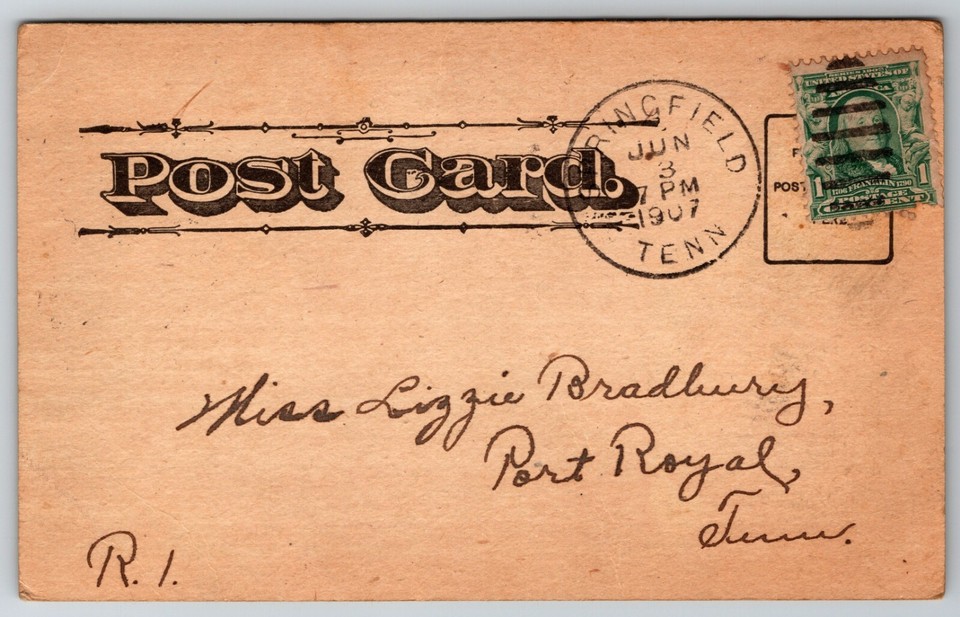 Post Card.
RINGFIELD
JUN
3
7 PM
1907
TENN
SERIES 1902
UNITED STATES OF
AMERICA
1 1790 FRANKLIN 1790 1
POSTAGE
ONE CENT
POST
Miss Lizzie Bradbury,
Port Royal,
Tenn.
R. 1.